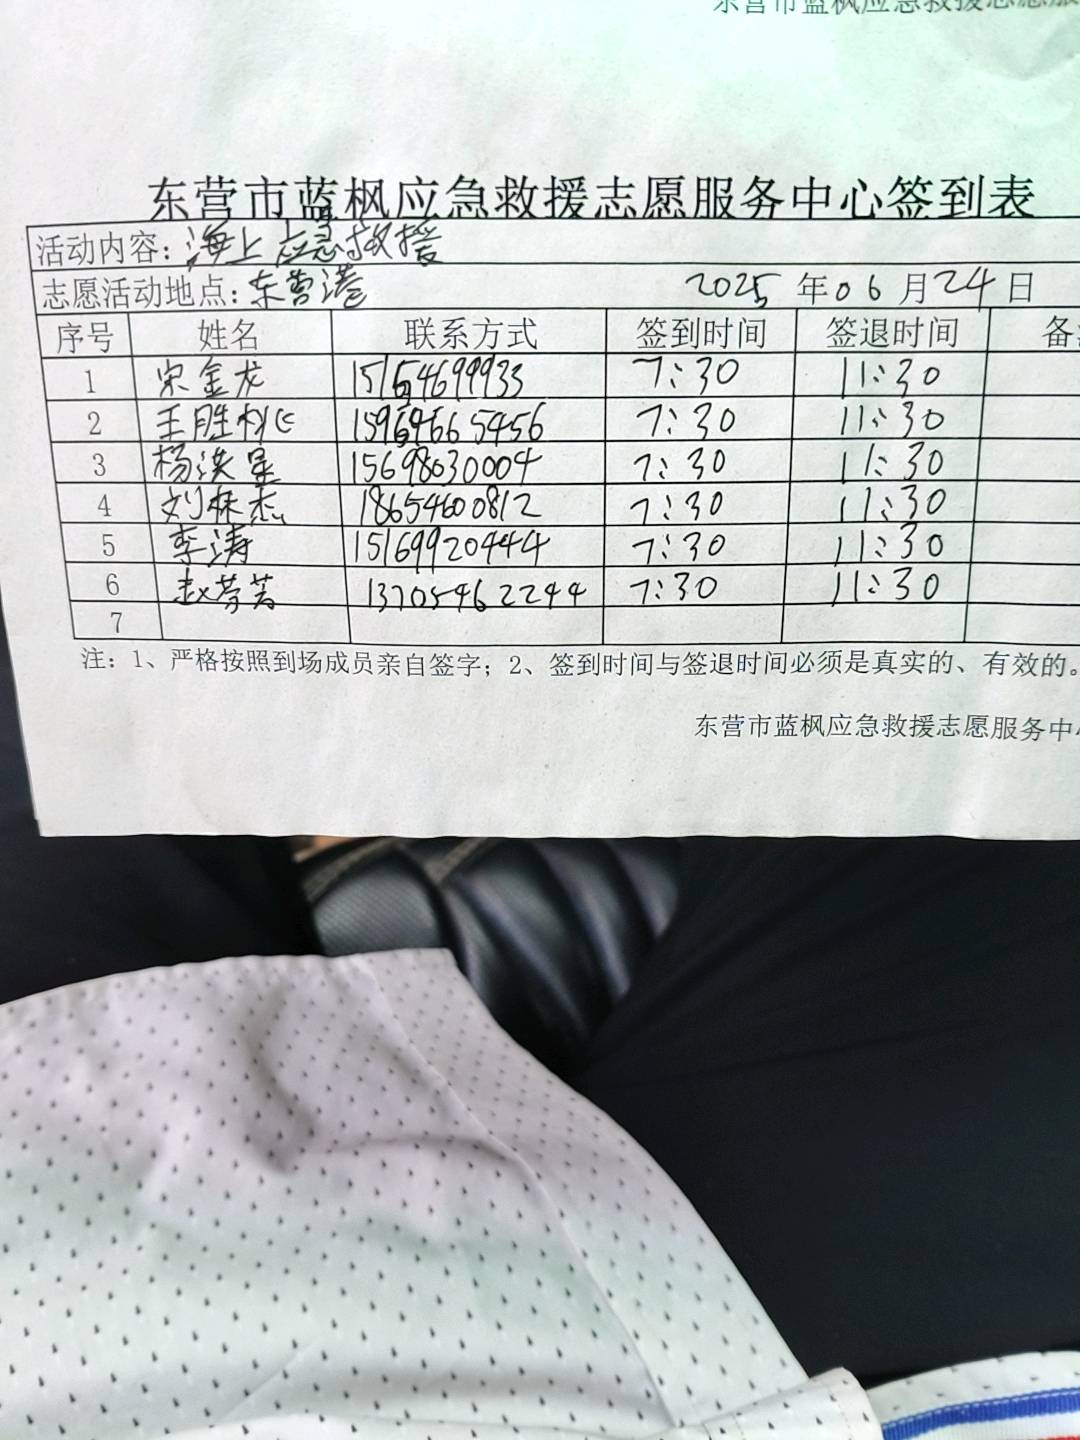 东营市蓝枫应急救援志愿服
东营市蓝枫应急救援志愿服务中心签到表
活动内容：海上应急救援
志愿活动地点：东营港 2025年06月24日
序号 姓名 联系方式 签到时间 签退时间 备
1 宋金龙 15154699933 7:30 11:30
2 王胜 7:30 11:30
3 杨洪星 15698030004 7:30 11:30
4 刘林杰 18654600812 7:30 11:30
5 李涛 15169920444 7:30 11:30
6 赵芬芳 13705462244 7:30 11:30
7
注：1、严格按照到场成员亲自签字；2、签到时间与签退时间必须是真实的、有效的。
东营市蓝枫应急救援志愿服务中心